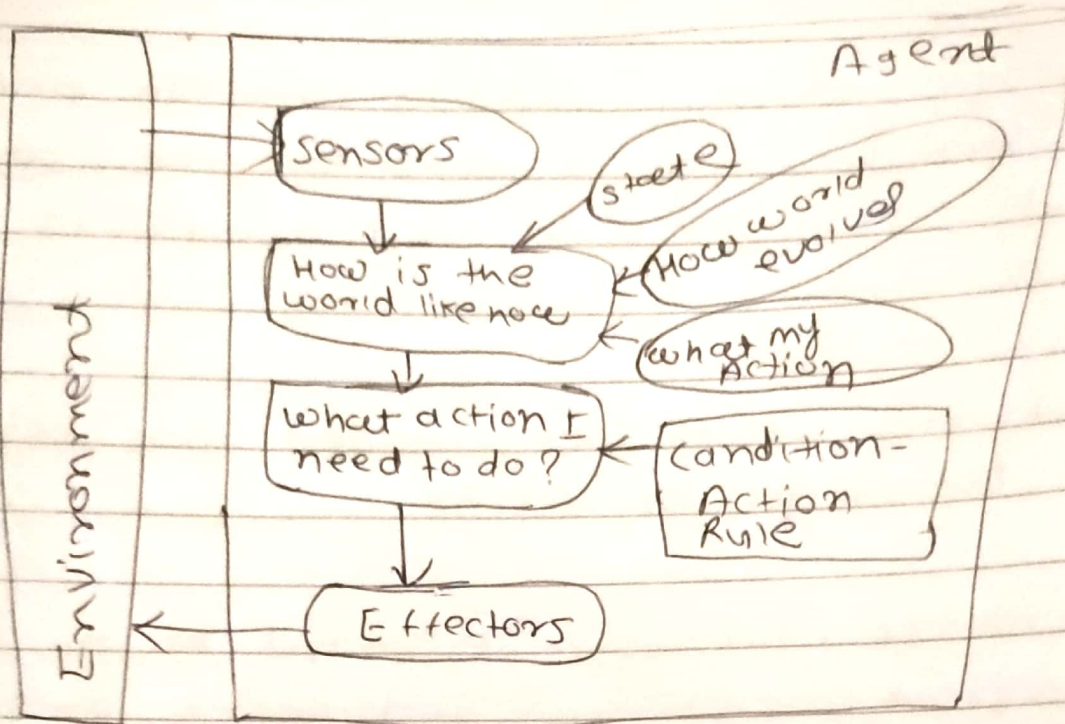 Agent
sensors
state
How world
evolves
How is the
world like now
what my
Action
what action I
need to do?
Candition-
Action
Rule
Effectors
Environment